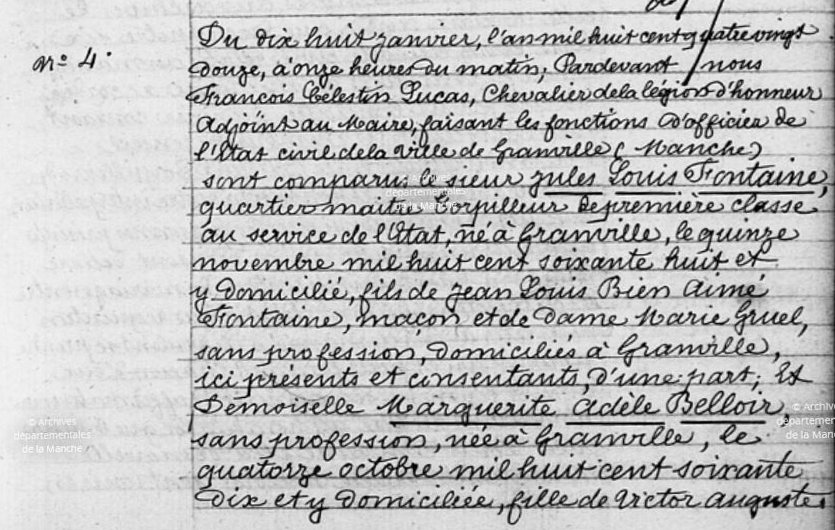 nº 4.
Du dix huit janvier, l'an mil huit cent quatre vingt
douze, à onze heures du matin, Pardevant nous
François Célestin Lucas, Chevalier de la légion d'honneur
adjoint au Maire, faisant les fonctions d'officier de
l'Etat civil de la ville de Granville (Manche)
sont comparus le sieur Jules Louis Fontaine,
quartier maitre torpilleur de première classe
au service de l'Etat, né à Granville, le quinze
novembre mil huit cent soixante huit et
y domicilié, fils de Jean Louis Bien Aimé
Fontaine, maçon et de dame Marie Gruel,
sans profession, domiciliés à Granville,
ici présents et consentants, d'une part; Et
Demoiselle Marguerite Adèle Belloir
sans profession, née à Granville, le
quatorze octobre mil huit cent soixante
dix et y domiciliée, fille de Victor Auguste
© Archives
départementales
de la Manche